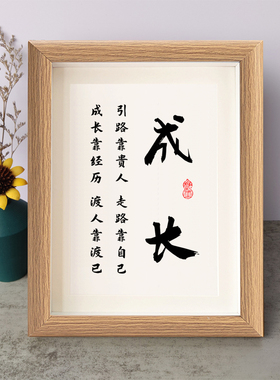 成长
引路靠貴人 走路靠自己
成长靠经历 渡人靠渡己